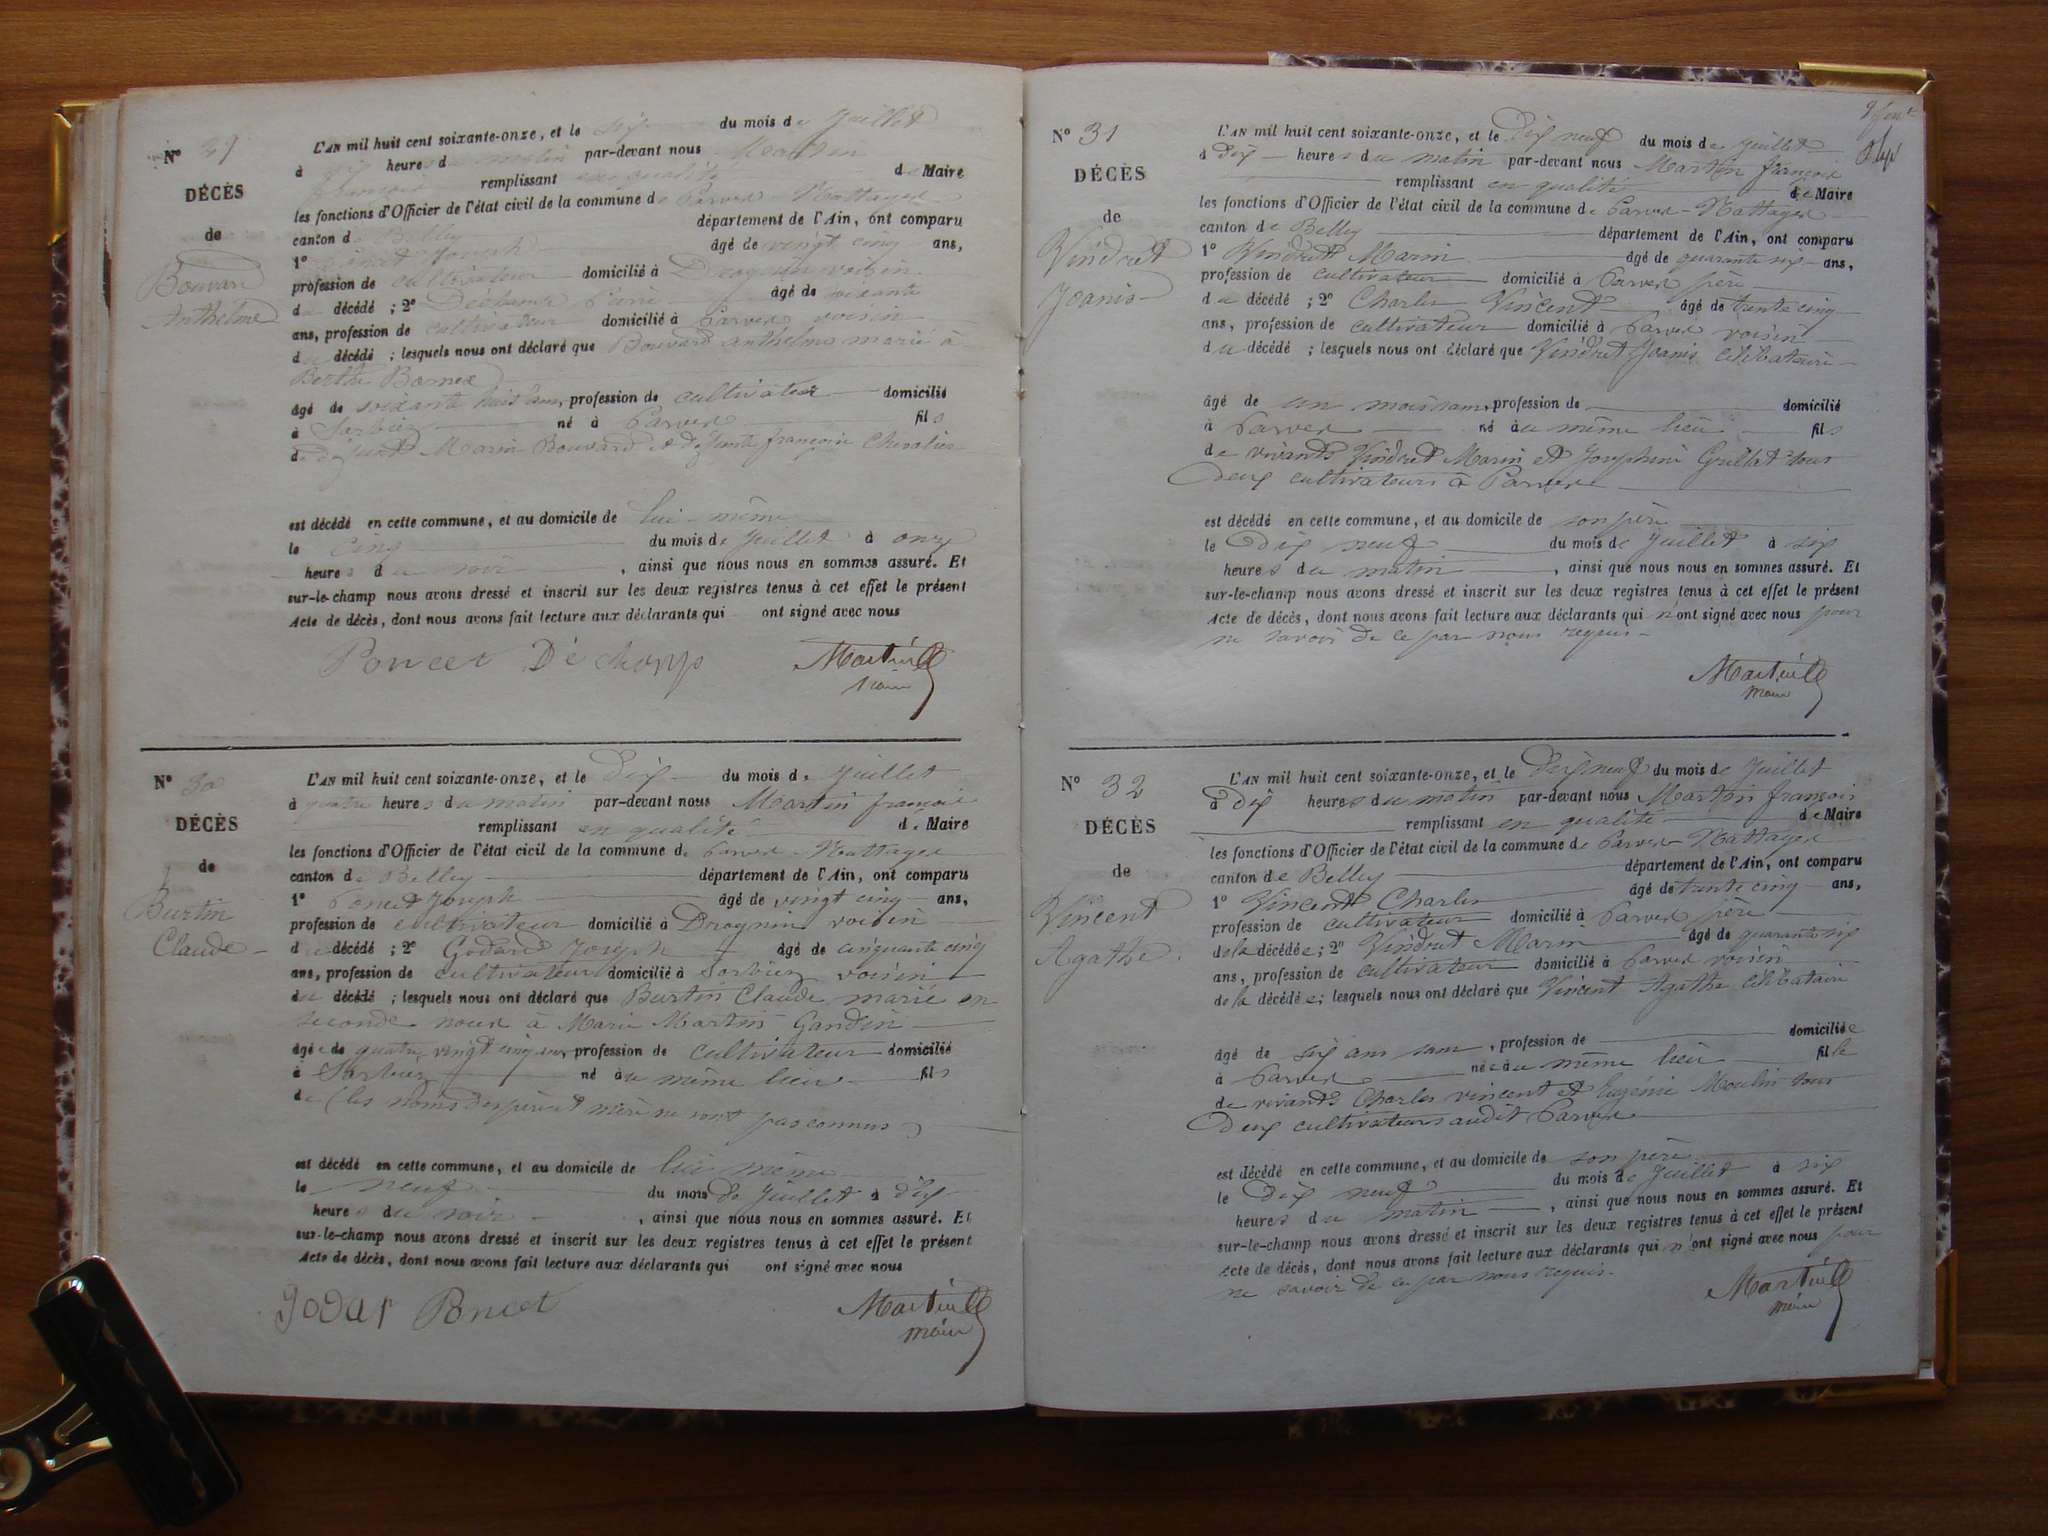 N° 29
DÉCÈS
de
Bouvard
Anthelme
L'AN mil huit cent soixante-onze, et le six du mois de Juillet
à heures du matin par-devant nous Martin
françois remplissant en qualité de Maire
les fonctions d'Officier de l'état civil de la commune de Parves-Nattages
canton de Belley département de l'Ain, ont comparu
1° Poncet Joseph âgé de vingt cinq ans,
profession de cultivateur domicilié à Drognin voisin
du décédé ; 2° Dechamp âgé de soixante
ans, profession de cultivateur domicilié à Parves voisin
du décédé ; lesquels nous ont déclaré que Bouvard Anthelme marié à
Berthe
âgé de soixante huit ans, profession de cultivateur domicilié
à Sorbier né à Parves fils
de défunts Marin Bouvard et défunte françoise Chevalier
est décédé en cette commune, et au domicile de lui-même
le cinq du mois de Juillet à onze
heures du soir, ainsi que nous nous en sommes assuré. Et
sur-le-champ nous avons dressé et inscrit sur les deux registres tenus à cet effet le présent
Acte de décès, dont nous avons fait lecture aux déclarants qui ont signé avec nous
Poncet Déchamp Martin
maire
N° 30
DÉCÈS
de
Burtin
Claude
L'AN mil huit cent soixante-onze, et le dix du mois de Juillet
à quatre heures du matin par-devant nous Martin françois
remplissant en qualité de Maire
les fonctions d'Officier de l'état civil de la commune de Parves-Nattages
canton de Belley département de l'Ain, ont comparu
1° Poncet Joseph âgé de vingt cinq ans,
profession de cultivateur domicilié à Drognin voisin
du décédé ; 2° Godard Joseph âgé de cinquante cinq
ans, profession de cultivateur domicilié à Sorbier voisin
du décédé ; lesquels nous ont déclaré que Burtin Claude marié en
seconde noces à Marie Martin Gandin
âgé de quatre vingt cinq ans, profession de cultivateur domicilié
à Sorbier né au même lieu fils
de (les noms des père et mère ne sont pas connus)
est décédé en cette commune, et au domicile de lui-même
le neuf du mois de Juillet à dix
heures du soir, ainsi que nous nous en sommes assuré. Et
sur-le-champ nous avons dressé et inscrit sur les deux registres tenus à cet effet le présent
Acte de décès, dont nous avons fait lecture aux déclarants qui ont signé avec nous
Godar Poncet Martin
maire
N° 31
DÉCÈS
de
Vindret
Joanis
L'AN mil huit cent soixante-onze, et le dix neuf du mois de Juillet
à dix heures du matin par-devant nous Martin françois
remplissant en qualité de Maire
les fonctions d'Officier de l'état civil de la commune de Parves-Nattages
canton de Belley département de l'Ain, ont comparu
1° Vindret Marin âgé de quarante six ans,
profession de cultivateur domicilié à Parves père
du décédé ; 2° Charles Vincent âgé de trente cinq
ans, profession de cultivateur domicilié à Parves voisin
du décédé ; lesquels nous ont déclaré que Vindret Joanis célibataire
âgé de un mois sans, profession de domicilié
à Parves né au même lieu fils
de vivants Vindret Marin et Joséphine Grillat tous
deux cultivateurs à Parves
est décédé en cette commune, et au domicile de son père
le dix neuf du mois de Juillet à six
heures du matin, ainsi que nous nous en sommes assuré. Et
sur-le-champ nous avons dressé et inscrit sur les deux registres tenus à cet effet le présent
Acte de décès, dont nous avons fait lecture aux déclarants qui n'ont signé avec nous pour
ne savoir de ce par nous requis
Martin
maire
N° 32
DÉCÈS
de
Vincent
Agathe
L'AN mil huit cent soixante-onze, et le dix neuf du mois de Juillet
à dix heures du matin par-devant nous Martin françois
remplissant en qualité de Maire
les fonctions d'Officier de l'état civil de la commune de Parves-Nattages
canton de Belley département de l'Ain, ont comparu
1° Vincent Charles âgé de trente cinq ans,
profession de cultivateur domicilié à Parves père
de la décédée ; 2° Vindret Marin âgé de quarante six
ans, profession de cultivateur domicilié à Parves voisin
de la décédée ; lesquels nous ont déclaré que Vincent Agathe célibataire
âgé de six ans sans, profession de domiciliée
à Parves née au même lieu fille
de vivants Charles vincent et Eugénie Moulin tous
deux cultivateurs audit Parves
est décédé en cette commune, et au domicile de son père
le dix neuf du mois de Juillet à six
heures du matin, ainsi que nous nous en sommes assuré. Et
sur-le-champ nous avons dressé et inscrit sur les deux registres tenus à cet effet le présent
Acte de décès, dont nous avons fait lecture aux déclarants qui n'ont signé avec nous pour
ne savoir de ce par nous requis.
Martin
maire